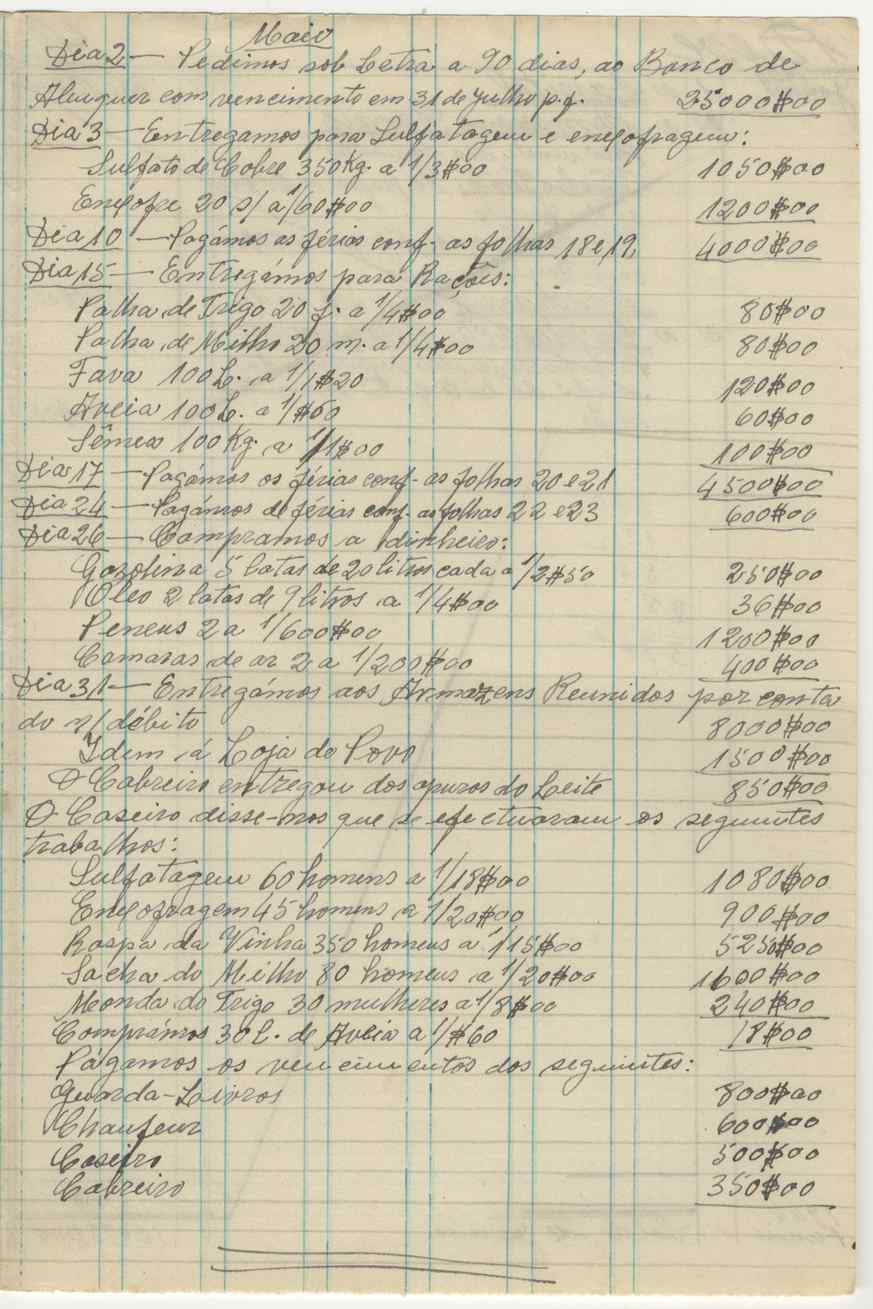 Maio
Dia 2 — Pedimos sob Letra a 90 dias, ao Banco de
Aluguer com vencimento em 31 de Julho p.f. 25000$00
Dia 3 — Entregamos para Sulfatagem e enxofragem:
Sulfato de Cobre 350 Kg. a 1/3$00 1050$00
Enxofre 20 s/ a 1/60$00 1200$00
Dia 10 — Pagámos as férias conf. as folhas 18 e 19, 4000$00
Dia 15 — Entregámos para Rações:
Palha de Trigo 20 f. a 1/4$00 80$00
Palha de Milho 20 m. a 1/4$00 80$00
Fava 100 L. a 1/1$20 120$00
Aveia 100 L. a 1/$60 60$00
Sêmeas 100 Kg. a 1/1$00 100$00
Dia 17 — Pagámos as férias conf. as folhas 20 e 21 4500$00
Dia 24 — Pagámos as férias conf. as folhas 22 e 23 600$00
Dia 26 — Compramos a dinheiro:
Gazolina 5 latas de 20 litros cada a 1/2$50 250$00
Oleo 2 latas de 9 litros a 1/4$00 36$00
Peneus 2 a 1/600$00 1200$00
Camaras de ar 2 a 1/200$00 400$00
Dia 31 — Entregámos aos Armazens Reunidos por conta
do n/débito 8000$00
Idem á Loja do Povo 1500$00
O Cabreiro entregou dos apuros do Leite 850$00
O Caseiro disse-nos que se efectuaram os seguintes
trabalhos:
Sulfatagem 60 homens a 1/18$00 1080$00
Enxofragem 45 homens a 1/20$00 900$00
Raspa da Vinha 350 homens a 1/15$00 5250$00
Sacha do Milho 80 homens a 1/20$00 1600$00
Monda do Trigo 30 mulheres a 1/8$00 240$00
Comprámos 30 L. de Aveia a 1/$60 18$00
Págamos os vencimentos dos seguintes:
Guarda-Livros 800$00
Chaufeur 600$00
Caseiro 500$00
Cabreiro 350$00